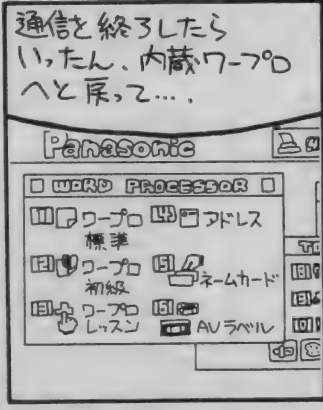 通信を終了したら
いったん、内蔵ワープロ
へと戻って…。
Panasonic
WORD PROCESSOR
[1] ワープロ
標準
[2] ワープロ
初級
[3] ワープロ
レッスン
[4] アドレス
[5] ネームカード
AVラベル